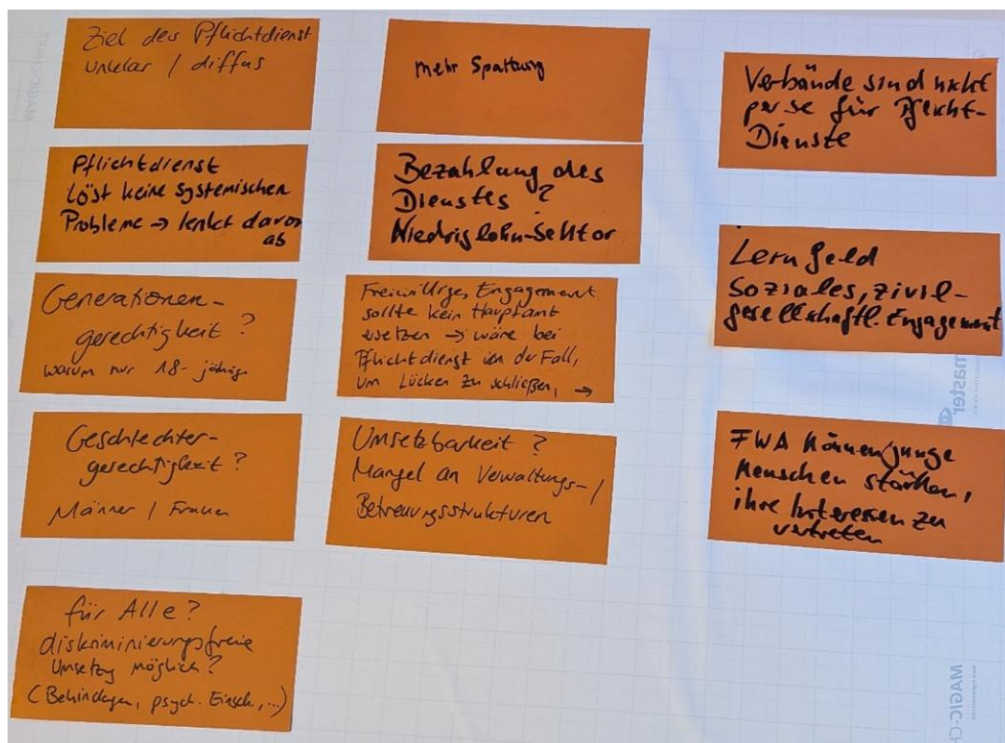 Ziel des Pflichtdienst
unklar / diffus
Pflichtdienst
löst keine systemischen
Probleme → lenkt davon
ab
Generationen-
gerechtigkeit?
warum nur 18-jährige
Geschlechter-
gerechtigkeit?
Männer / Frauen
für Alle?
diskriminierungsfreie
Umsetzg möglich?
(Behinderungen, psych. Einsch., ...)
mehr Spaltung
Bezahlung des
Dienstes?
Niedriglohn-Sektor
Freiwilliges Engagement
sollte kein Hauptamt
ersetzen → wäre bei
Pflichtdienst der Fall,
um Lücken zu schließen, →
Umsetzbarkeit?
Mangel an Verwaltungs- /
Betreuungsstrukturen
Verbände sind nicht
per se für Pflicht-
Dienste
Lernfeld
Soziales, zivil-
gesellschaftl. Engagement
master
FWA können junge
Menschen stärken,
ihre Interessen zu
vertreten
MAGIC-CH